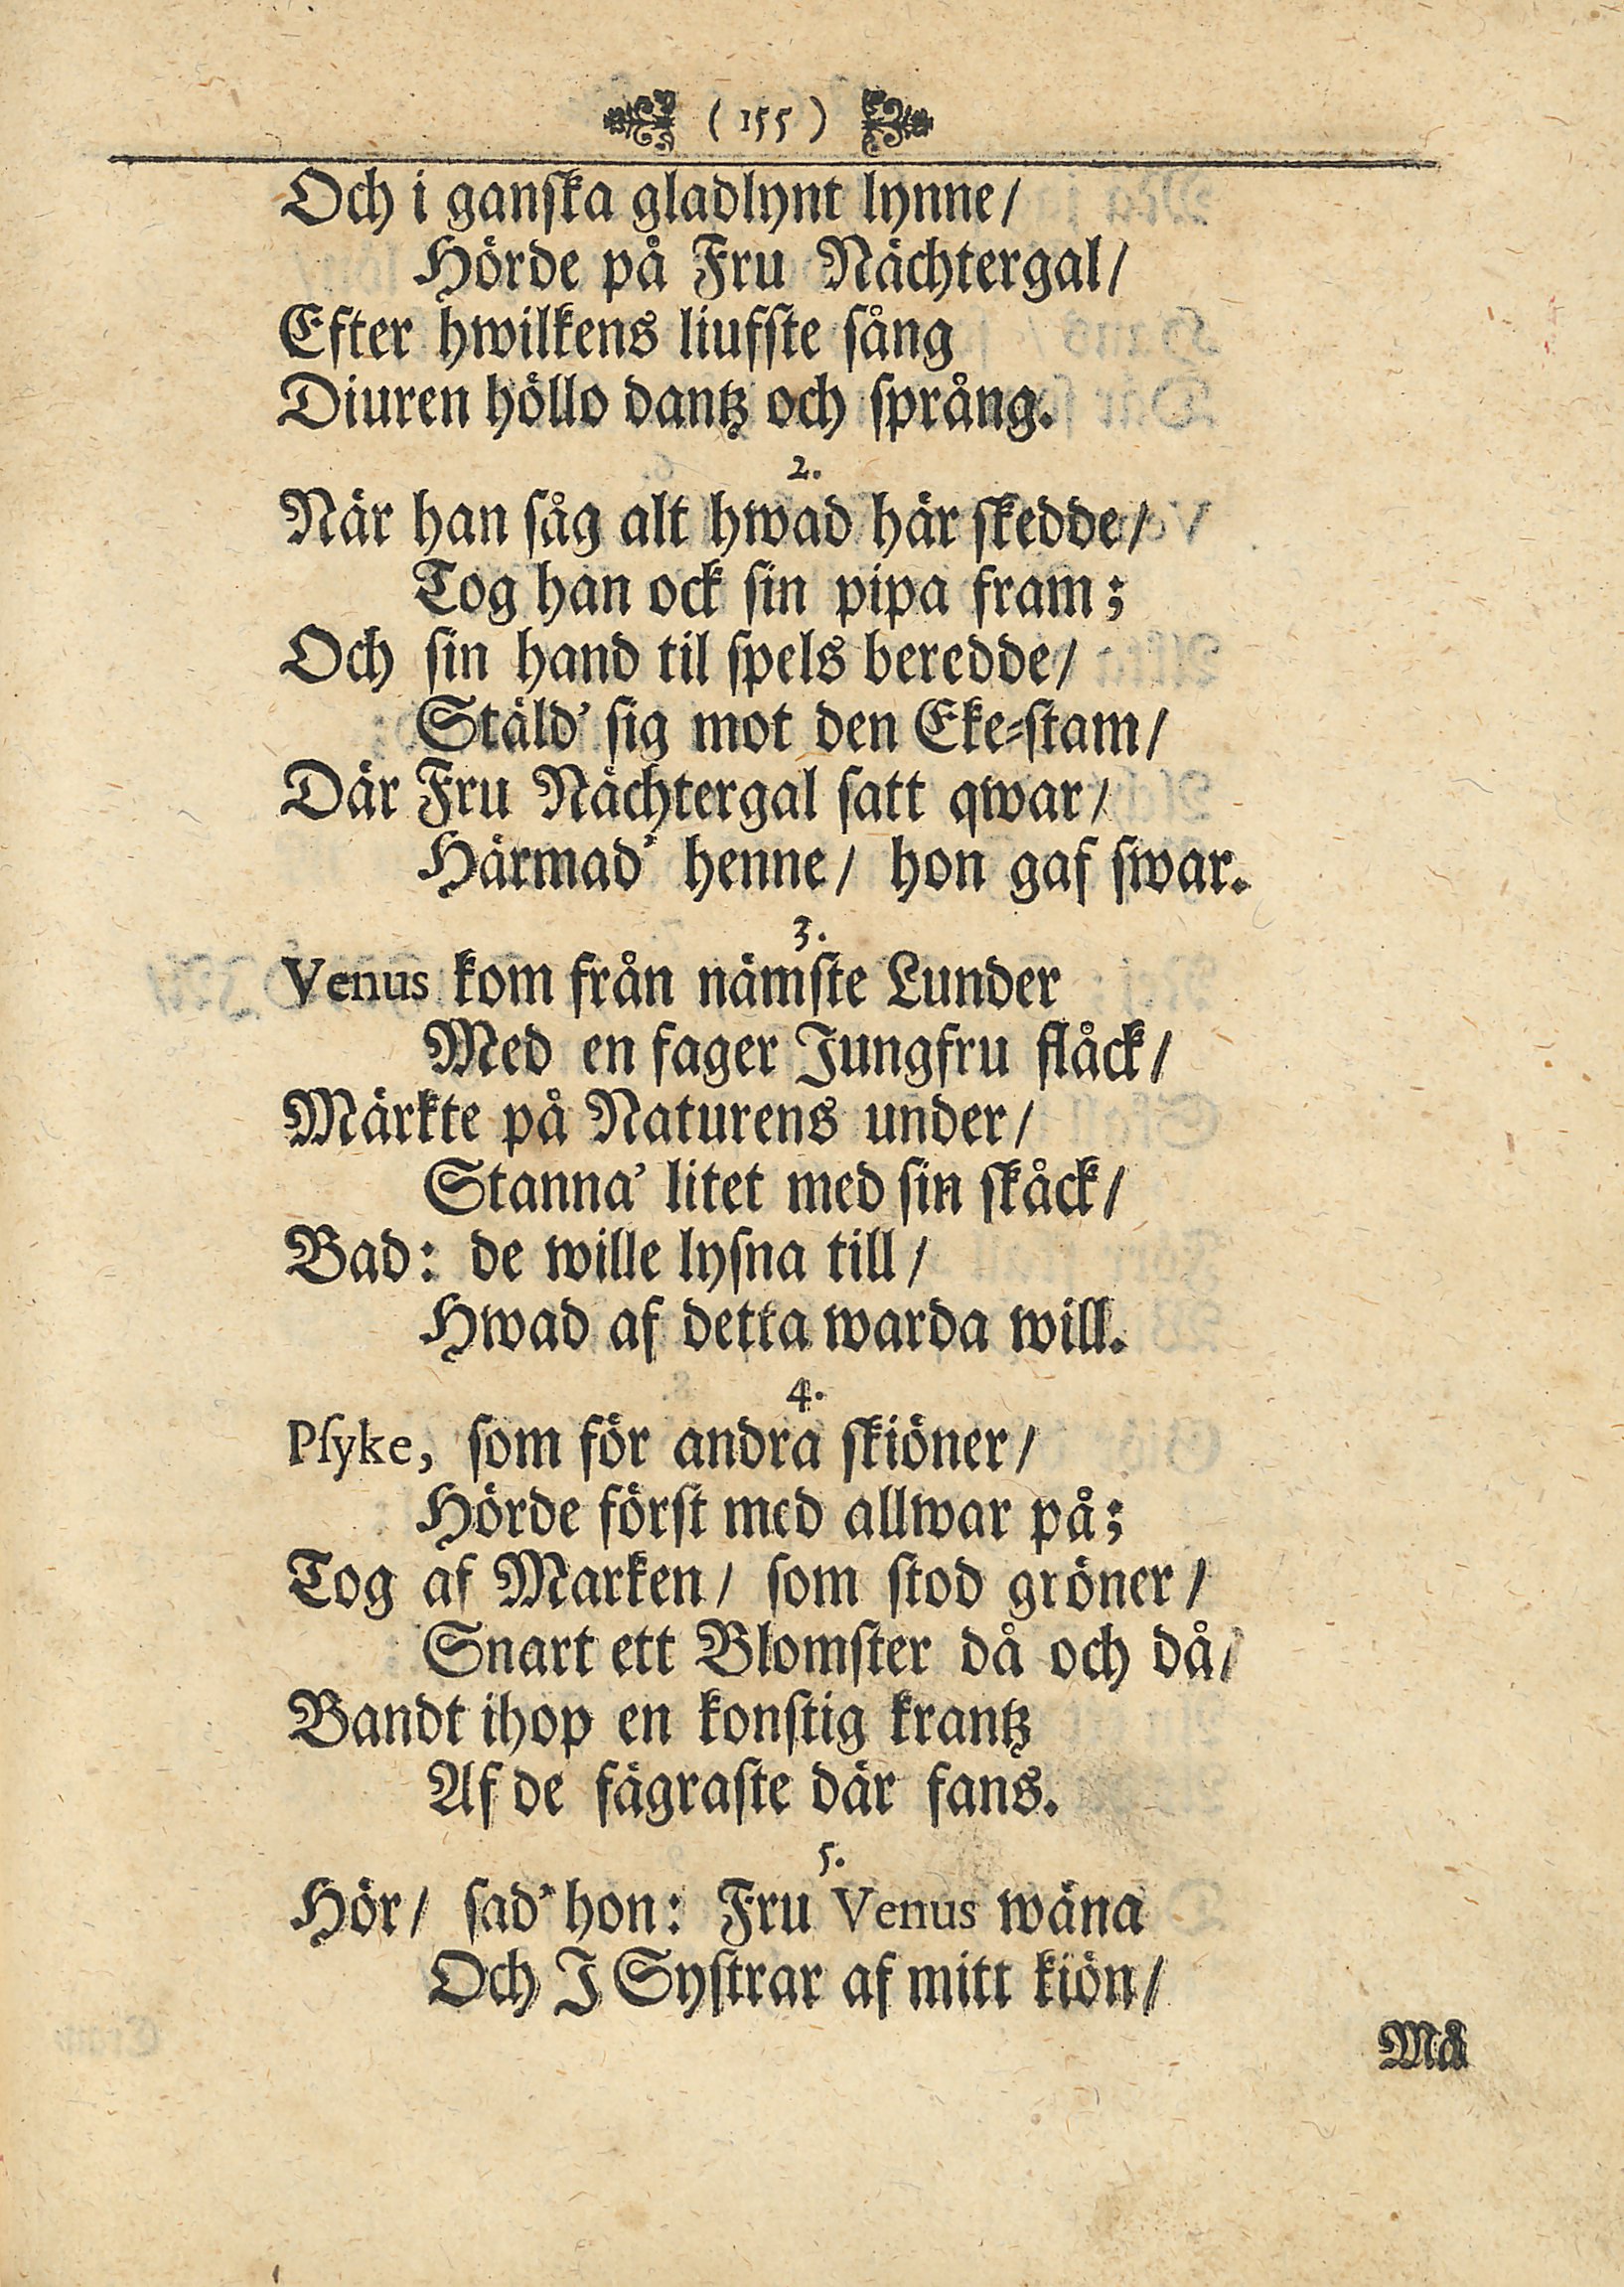 ( 155 )
Och i ganska gladlynt lynne/
Hörde på Fru Nächtergal/
Efter hwilkens liufste sång
Diuren höllo dantz och språng.
2.
När han såg alt hwad här skedde/
Tog han ock sin pipa fram;
Och sin hand til spels beredde/
Stäld' sig mot den Eke-stam/
Där Fru Nächtergal satt qwar/
Härmad' henne/ hon gaf swar.
3.
Venus kom från nämste Lunder
Med en fager Jungfru flåck/
Märkte på Naturens under/
Stanna' litet med sin skåck/
Bad: de wille lysna till/
Hwad af detta warda will.
4.
Pſyke, som för andra skiöner/
Hörde först med allwar på;
Tog af Marken/ som stod gröner/
Snart ett Blomster då och då/
Bandt ihop en konstig krantz
Af de fägraste där fans.
5.
Hör/ sad' hon: Fru Venus wäna
Och J Systrar af mitt kiön/
Må